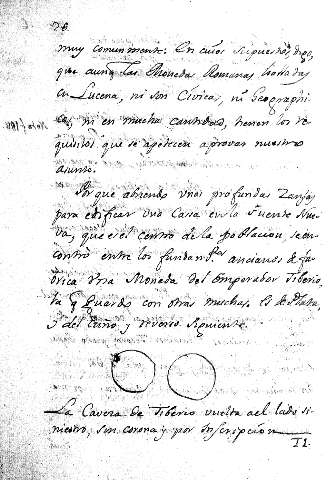 78
muy comunmente. En cuios supuestos, digo,
que aunq. las Monedas Romanas halladas
en Lucena, ni son Civicas, ni Geographi-
cas, ni en mucha cantidad, tienen los re-
quisitos, que se apetecen a provar nuestro
asunto.
Porque abriendo unas profundas Zanjas
para edificar una Casa en la Fuente Nue-
va, que es el centro de la poblacion, se en-
contrò entre los fundam.tos ancianos de fa-
brica una Moneda del Emperador Tiberio,
la q. Guardo con otras muchas. Es de Plata,
y del Cuño, y reverso siguiente.
La Caveza de Tiberio vuelta a el lado si-
niestro, sin corona y por Inscripcion
TI.